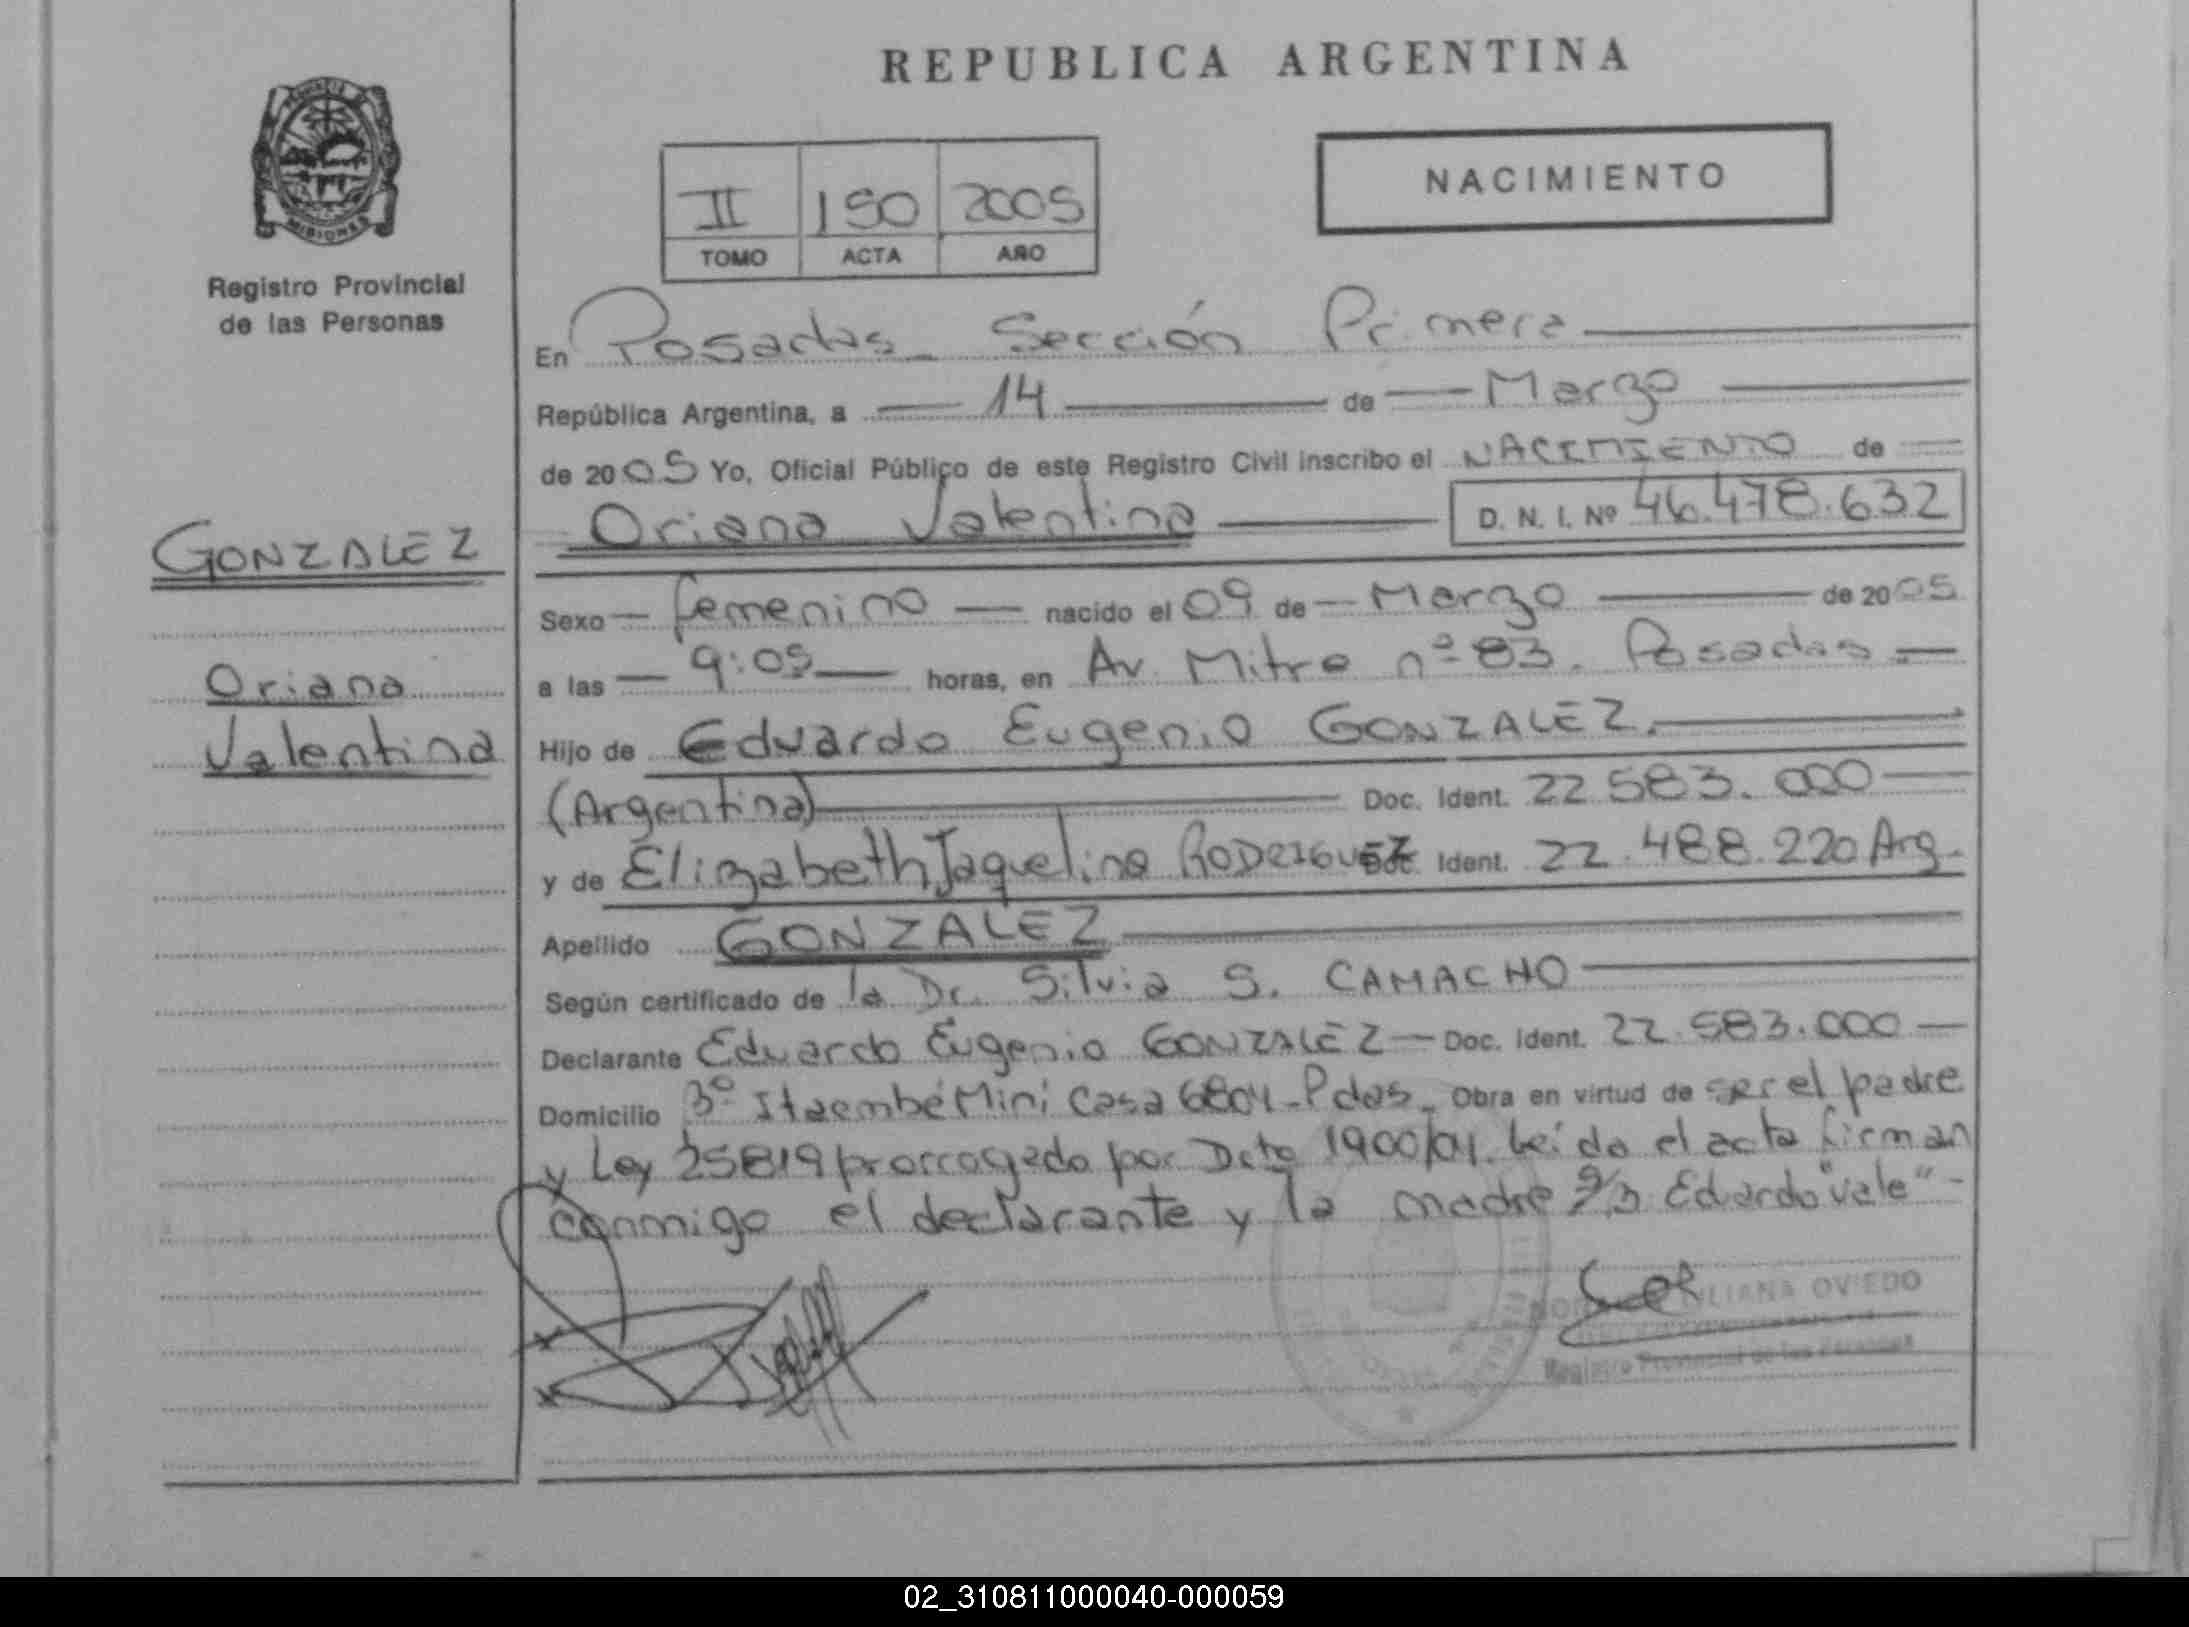 REPUBLICA ARGENTINA
PROVINCIA DE
MISIONES
Registro Provincial
de las Personas
II 150 2005
TOMO ACTA AÑO
NACIMIENTO
En Posadas - Sección Primera
República Argentina, a 14 de Marzo
de 2005 Yo, Oficial Público de este Registro Civil inscribo el NACIMIENTO de
Oriana Valentina D. N. I. Nº 46.478.632
GONZALEZ
Oriana
Valentina
Sexo femenino nacido el 09 de Marzo de 2005
a las 9:05 horas, en Av. Mitre nº 83. Posadas.
Hijo de Eduardo Eugenio GONZALEZ.
(Argentina) Doc. Ident. 22.583.000
y de Elizabeth Jaquelina RODRIGUEZ Doc. Ident. 22.488.220 Arg.
Apellido GONZALEZ
Según certificado de la Dr. Silvia S. CAMACHO
Declarante Eduardo Eugenio GONZALEZ Doc. Ident. 22.583.000
Domicilio 3º Itaembé Mini Casa 6804 - Pdas. Obra en virtud de ser el padre
y Ley 25819 prorrogado por Dcto 1900/04. Leído el acta firman
conmigo el declarante y la madre s/r Eduardo "vale" -
LILIANA OVIEDO
Registro Provincial de las Personas
02_310811000040-000059